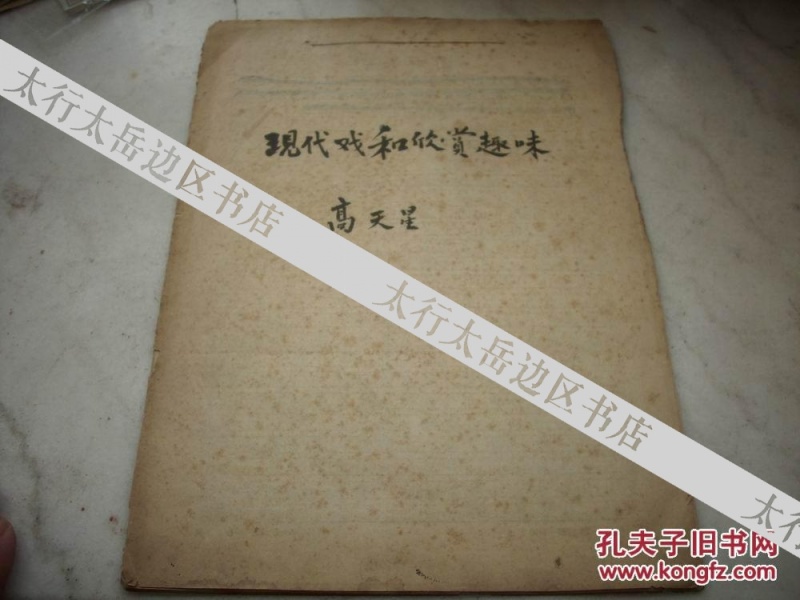 现代戏和欣赏趣味
高天星
太行太岳边区书店
太行太岳边区书店
太行太岳
孔夫子旧书网
www.kongfz.com